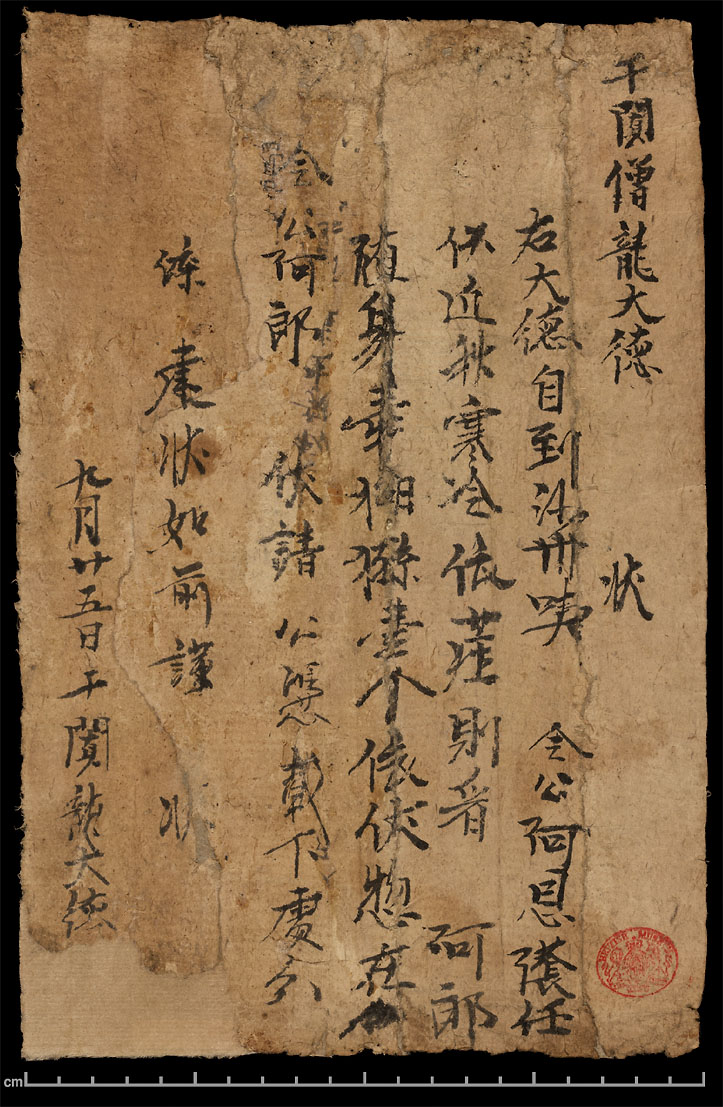 于闐僧龍大德 狀
右大德自到沙州喫 令公阿恩任
近秋寒冷依則看 阿郎
隨身壹个依伏惣在
令公阿郎 伏請 公憑裁下處分
狀如前謹 狀
九月廿五日于闐龍大德
cm